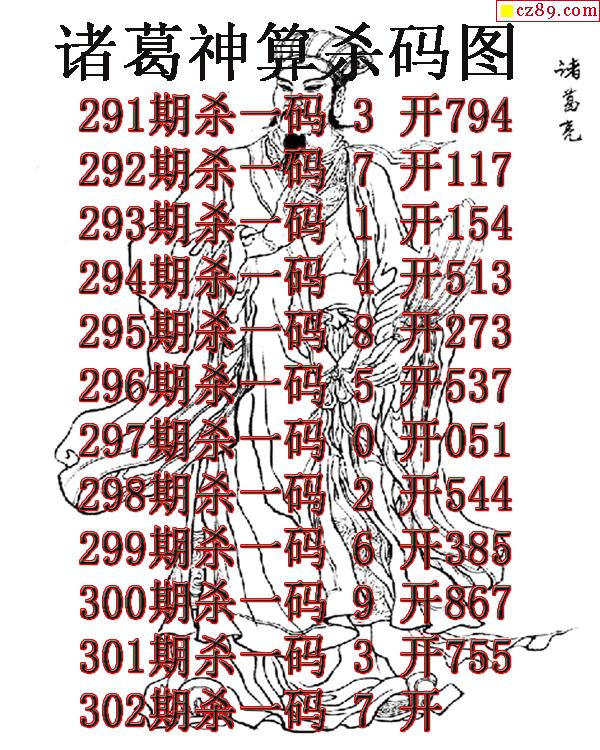 cz89.com
诸葛神算杀码图
诸葛亮
291期杀一码 3 开794
292期杀一码 7 开117
293期杀一码 1 开154
294期杀一码 4 开513
295期杀一码 8 开273
296期杀一码 5 开537
297期杀一码 0 开051
298期杀一码 2 开544
299期杀一码 6 开385
300期杀一码 9 开867
301期杀一码 3 开755
302期杀一码 7 开